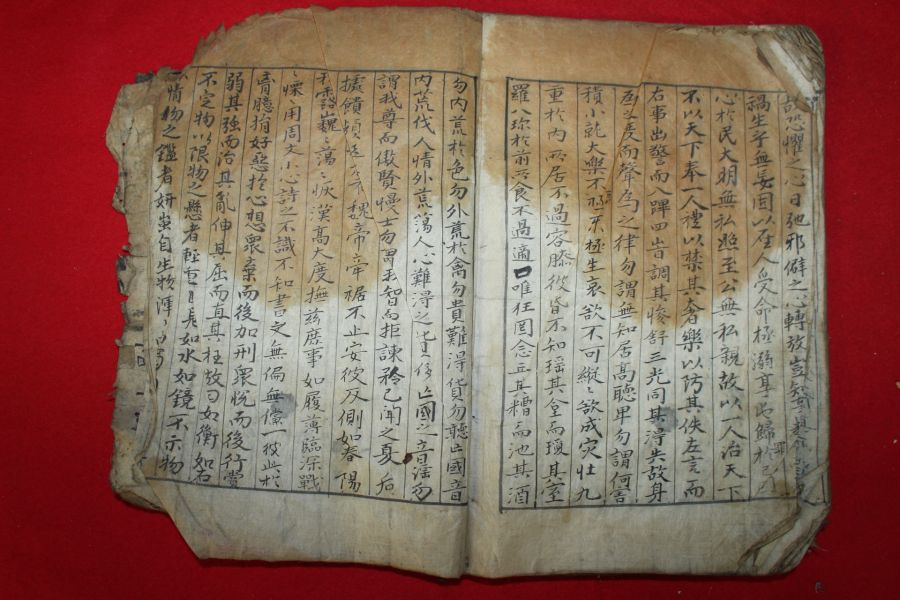 故恐懼之心日弛邪僻之心轉放豈知事
禍生乎無妄固以聖人受命極溺亨屯歸於己因
心於民大明無私照至公無私親故以一人治天下
不以天下奉一人禮以禁其奢樂以防其佚左言而
右事出警而入蹕四旹調其慘舒三光同其淂失故身
爲之度而聲爲之律勿謂無知居高聽卑勿謂何害
積小就大樂不極生哀欲不可縱〻欲成灾壯九
重於内所居不過容膝彼昏不知瑶其䑓而瓊其室
羅八珍於前所食不過適口唯狂罔念丘其糟而池其酒
勿内荒於色勿外荒於禽勿貴難得貨勿聽亡國音
内荒伐人情外荒蕩人心難淂之貨侈亡國之音淫勿
謂我尊而傲賢慢士勿謂我智而拒諫矜己聞之夏后
據饋頻起亦魏帝牽裾不止安彼反側如春陽
秋露巍〻蕩〻恢漢高大度撫茲庶事如履薄臨深戰
〻慄〻用周文小心詩之不識不知書之無偏無儻一彼此於
胷臆捐好惡於心想衆棄而後加刑衆悅而後行賞
弱其强而治其亂伸其屈而直其枉故曰如衡如石
不定物以限物之懸者輕重自見如水如鏡不示物
以情物之鑑者妍蚩自生物渾〻